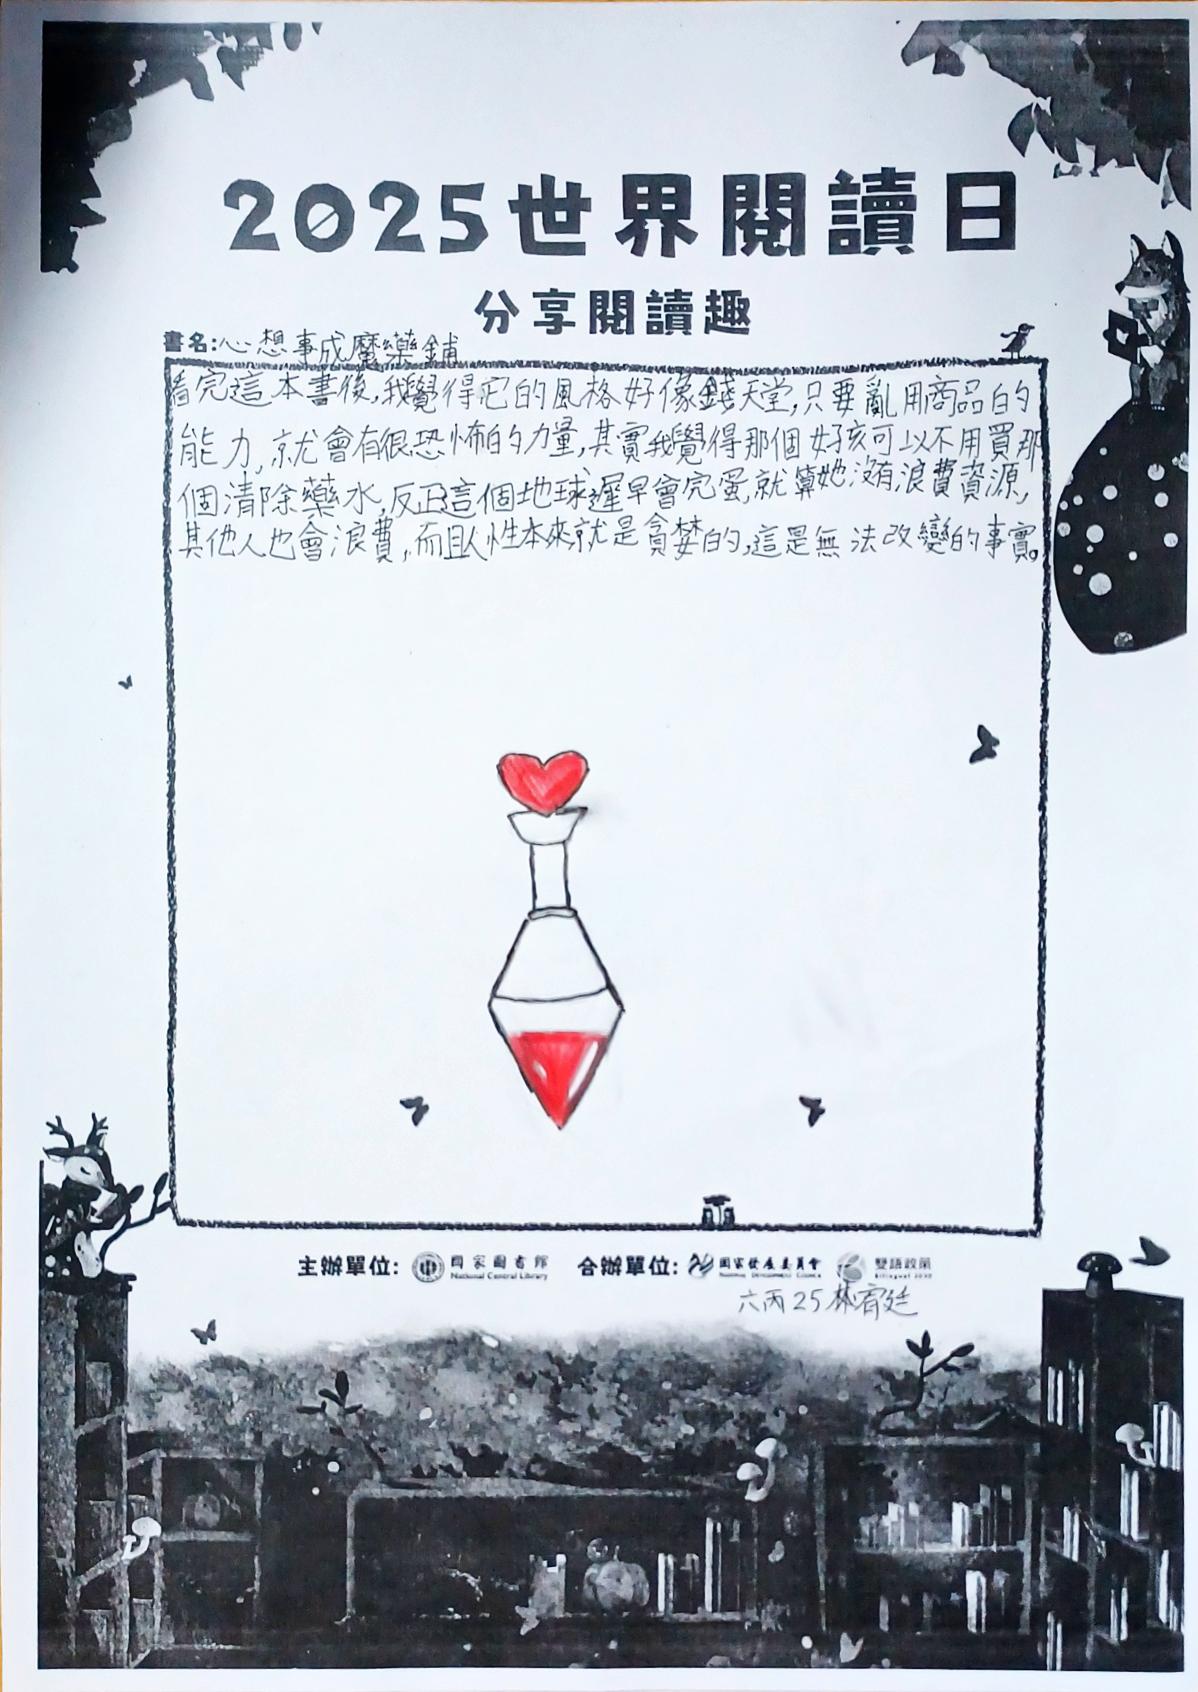 2025世界閱讀日
分享閱讀趣
書名:心想事成魔藥鋪
看完這本書後,我覺得它的風格好像錢天堂,只要亂用商品的
能力,就會有很恐怖的力量,其實我覺得那個女孩可以不用買那
個清除藥水,反正這個地球遲早會完蛋,就算她沒有浪費資源,
其他人也會浪費,而且人性本來就是貪婪的,這是無法改變的事實。
主辦單位: 國家圖書館 National Central Library 合辦單位: 國家發展委員會 NATIONAL DEVELOPMENT COUNCIL 雙語政策 Bilingual 2030
六丙25林宥廷